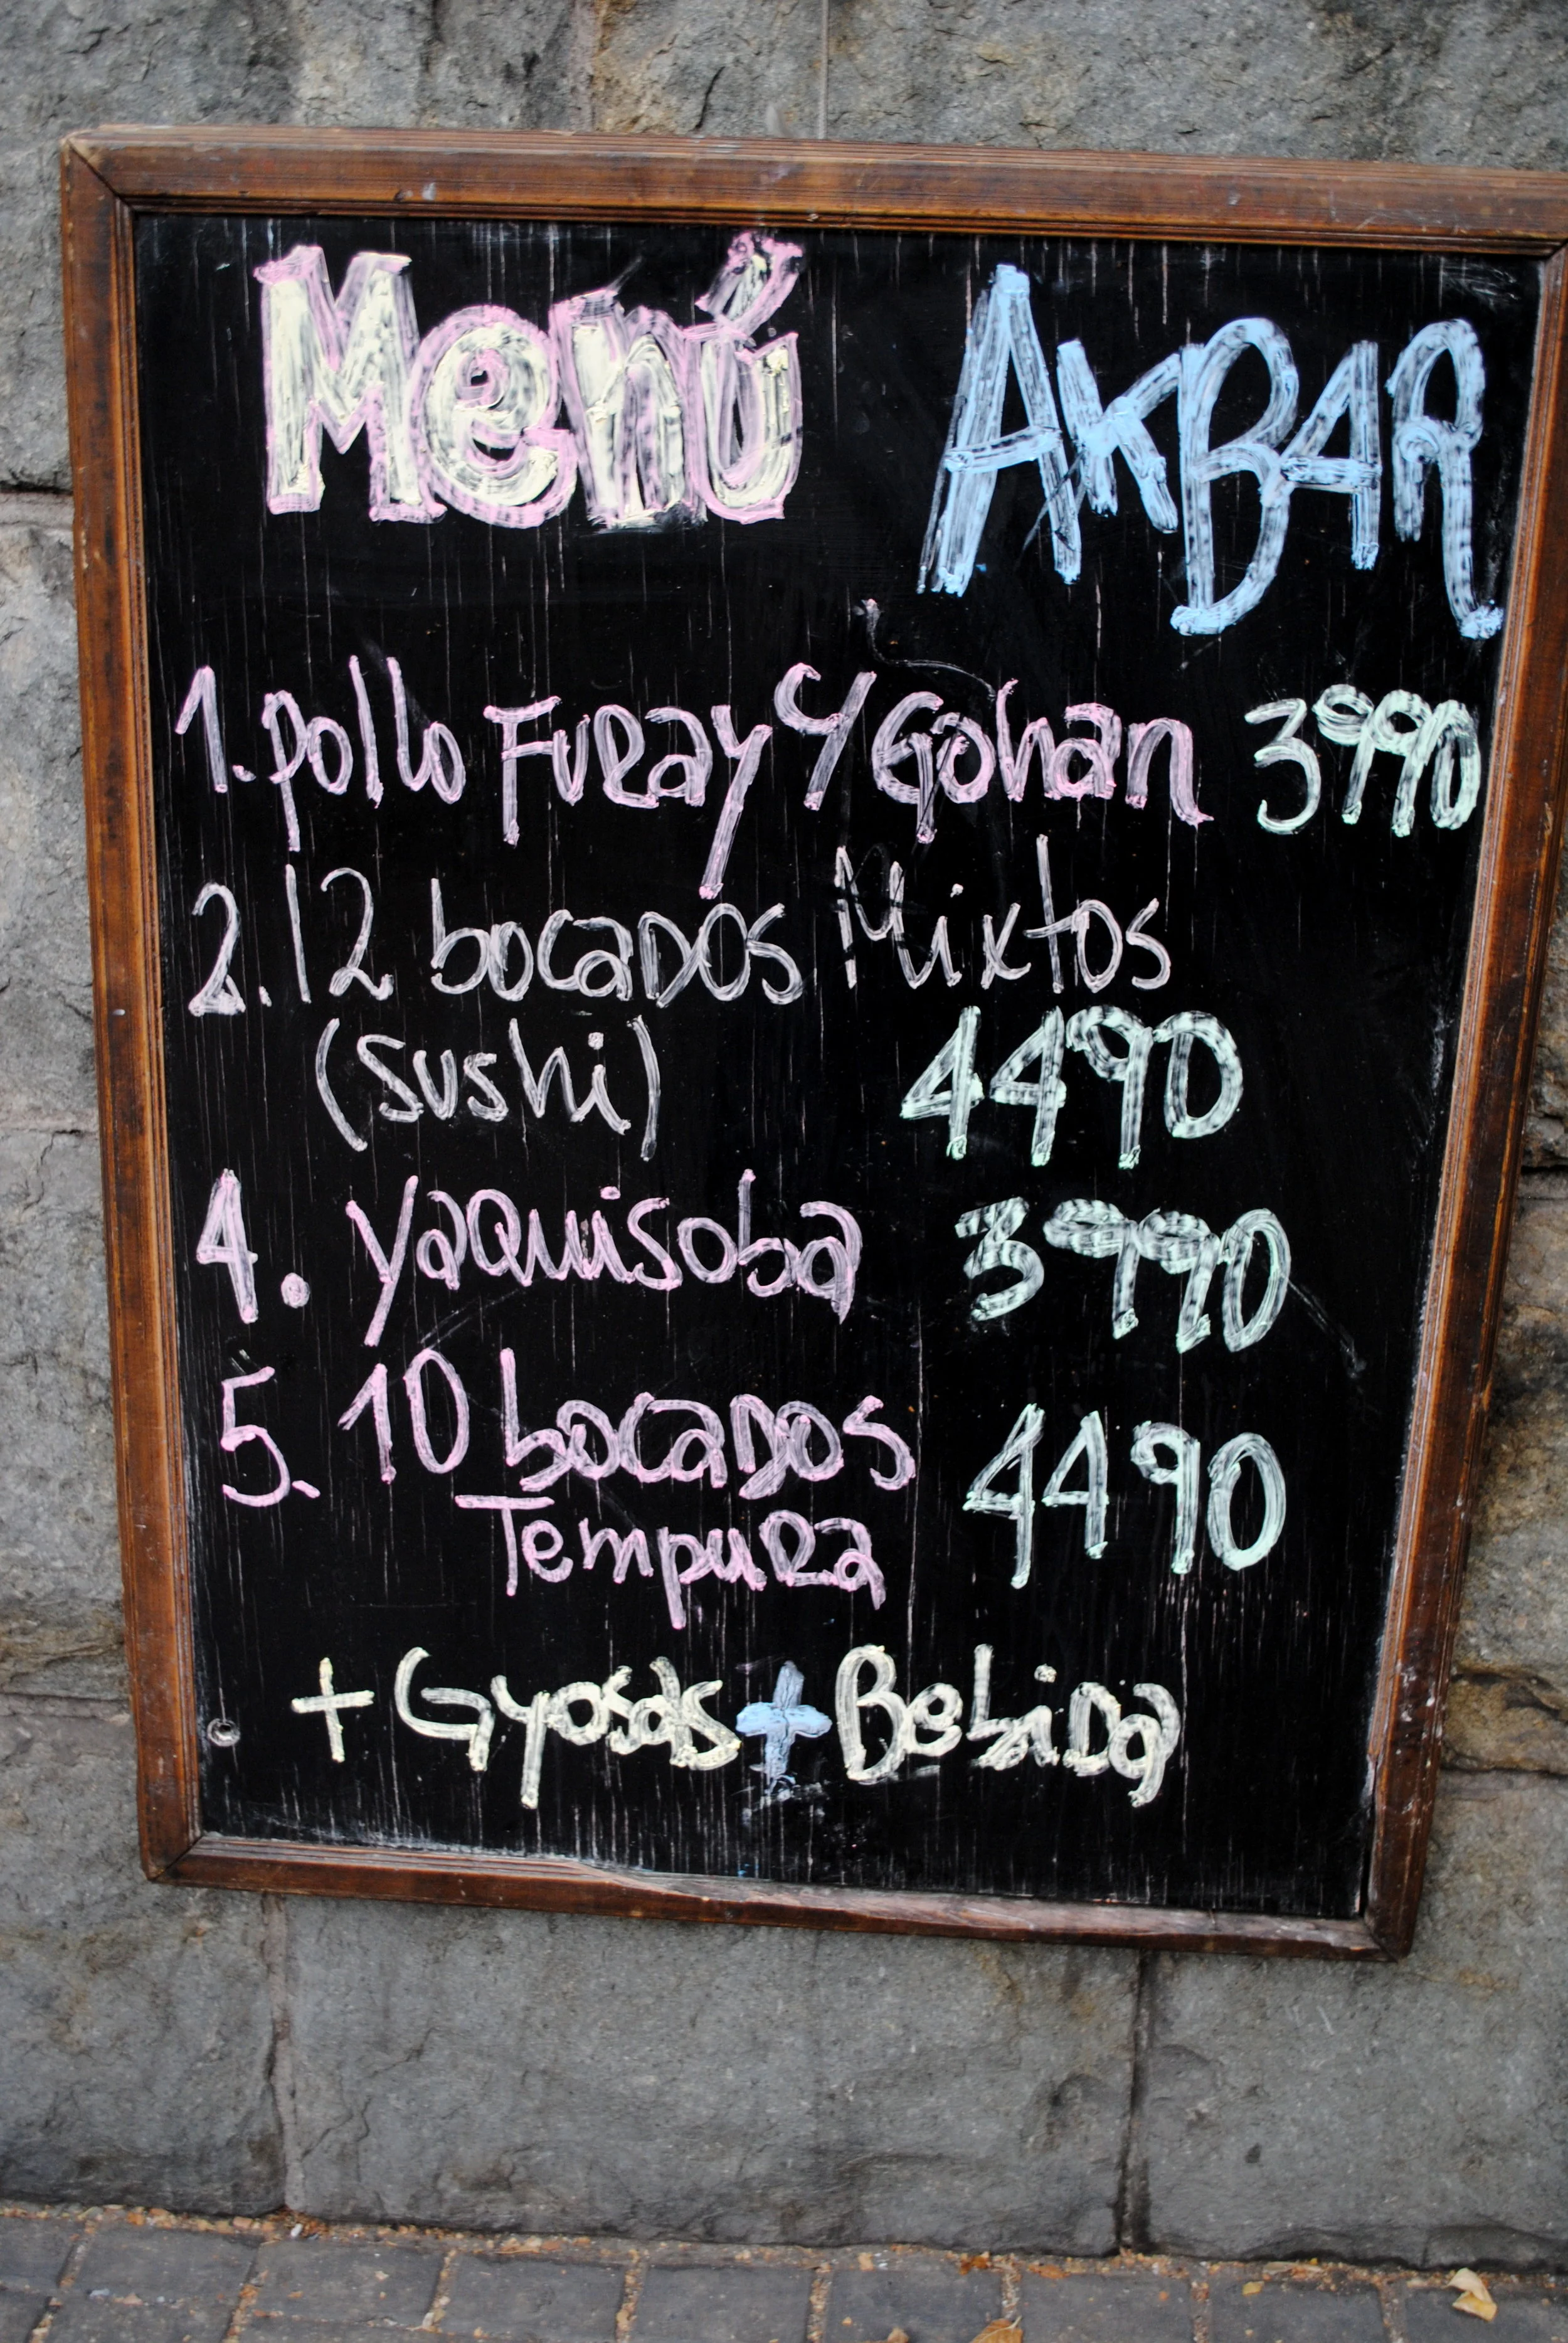 Menú AKBAR
1. pollo Furay c/ Gohan 3990
2. 12 bocados Mixtos
(sushi) 4490
4. Yaquisoba 3990
5. 10 bocados 4490
Tempura
+ Gyosas + Bebida